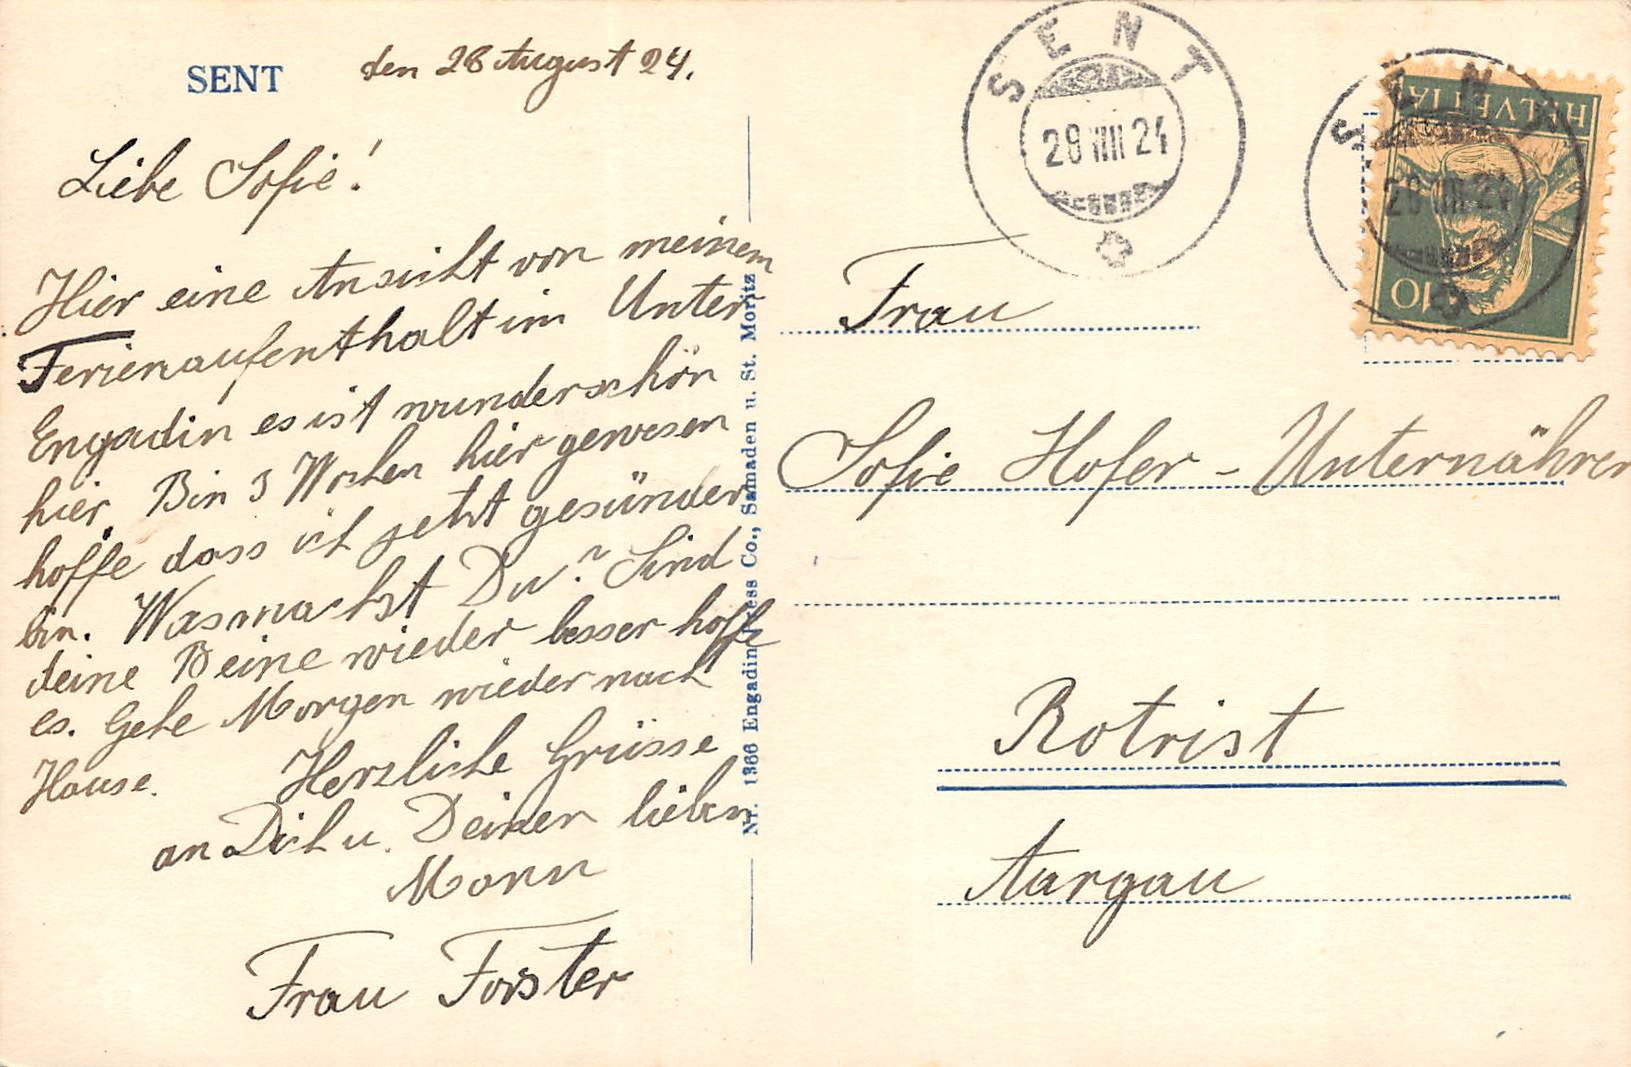 SENT
den 28 August 24.
Liebe Sofie!
Hier eine Ansicht von meinem
Ferienaufenthalt im Unter
Engadin es ist wunderschön
hier. Bin 3 Wochen hier gewesen
hoffe dass ich jetzt gesünder
bin. Was machst Du? Sind
deine Beine wieder besser hoffe
es. Gehe Morgen wieder nach
Hause. Herzliche Grüsse
an Dich u. Deinen lieben
Mann
Frau Forster
Nr. 1366 Engadin Press Co., Samaden u. St. Moritz
SENT
29 VIII 24
SENT
29 VIII 24
HELVETIA
10
Frau
Sofie Hofer - Unternährer
Rotrist
Aargau